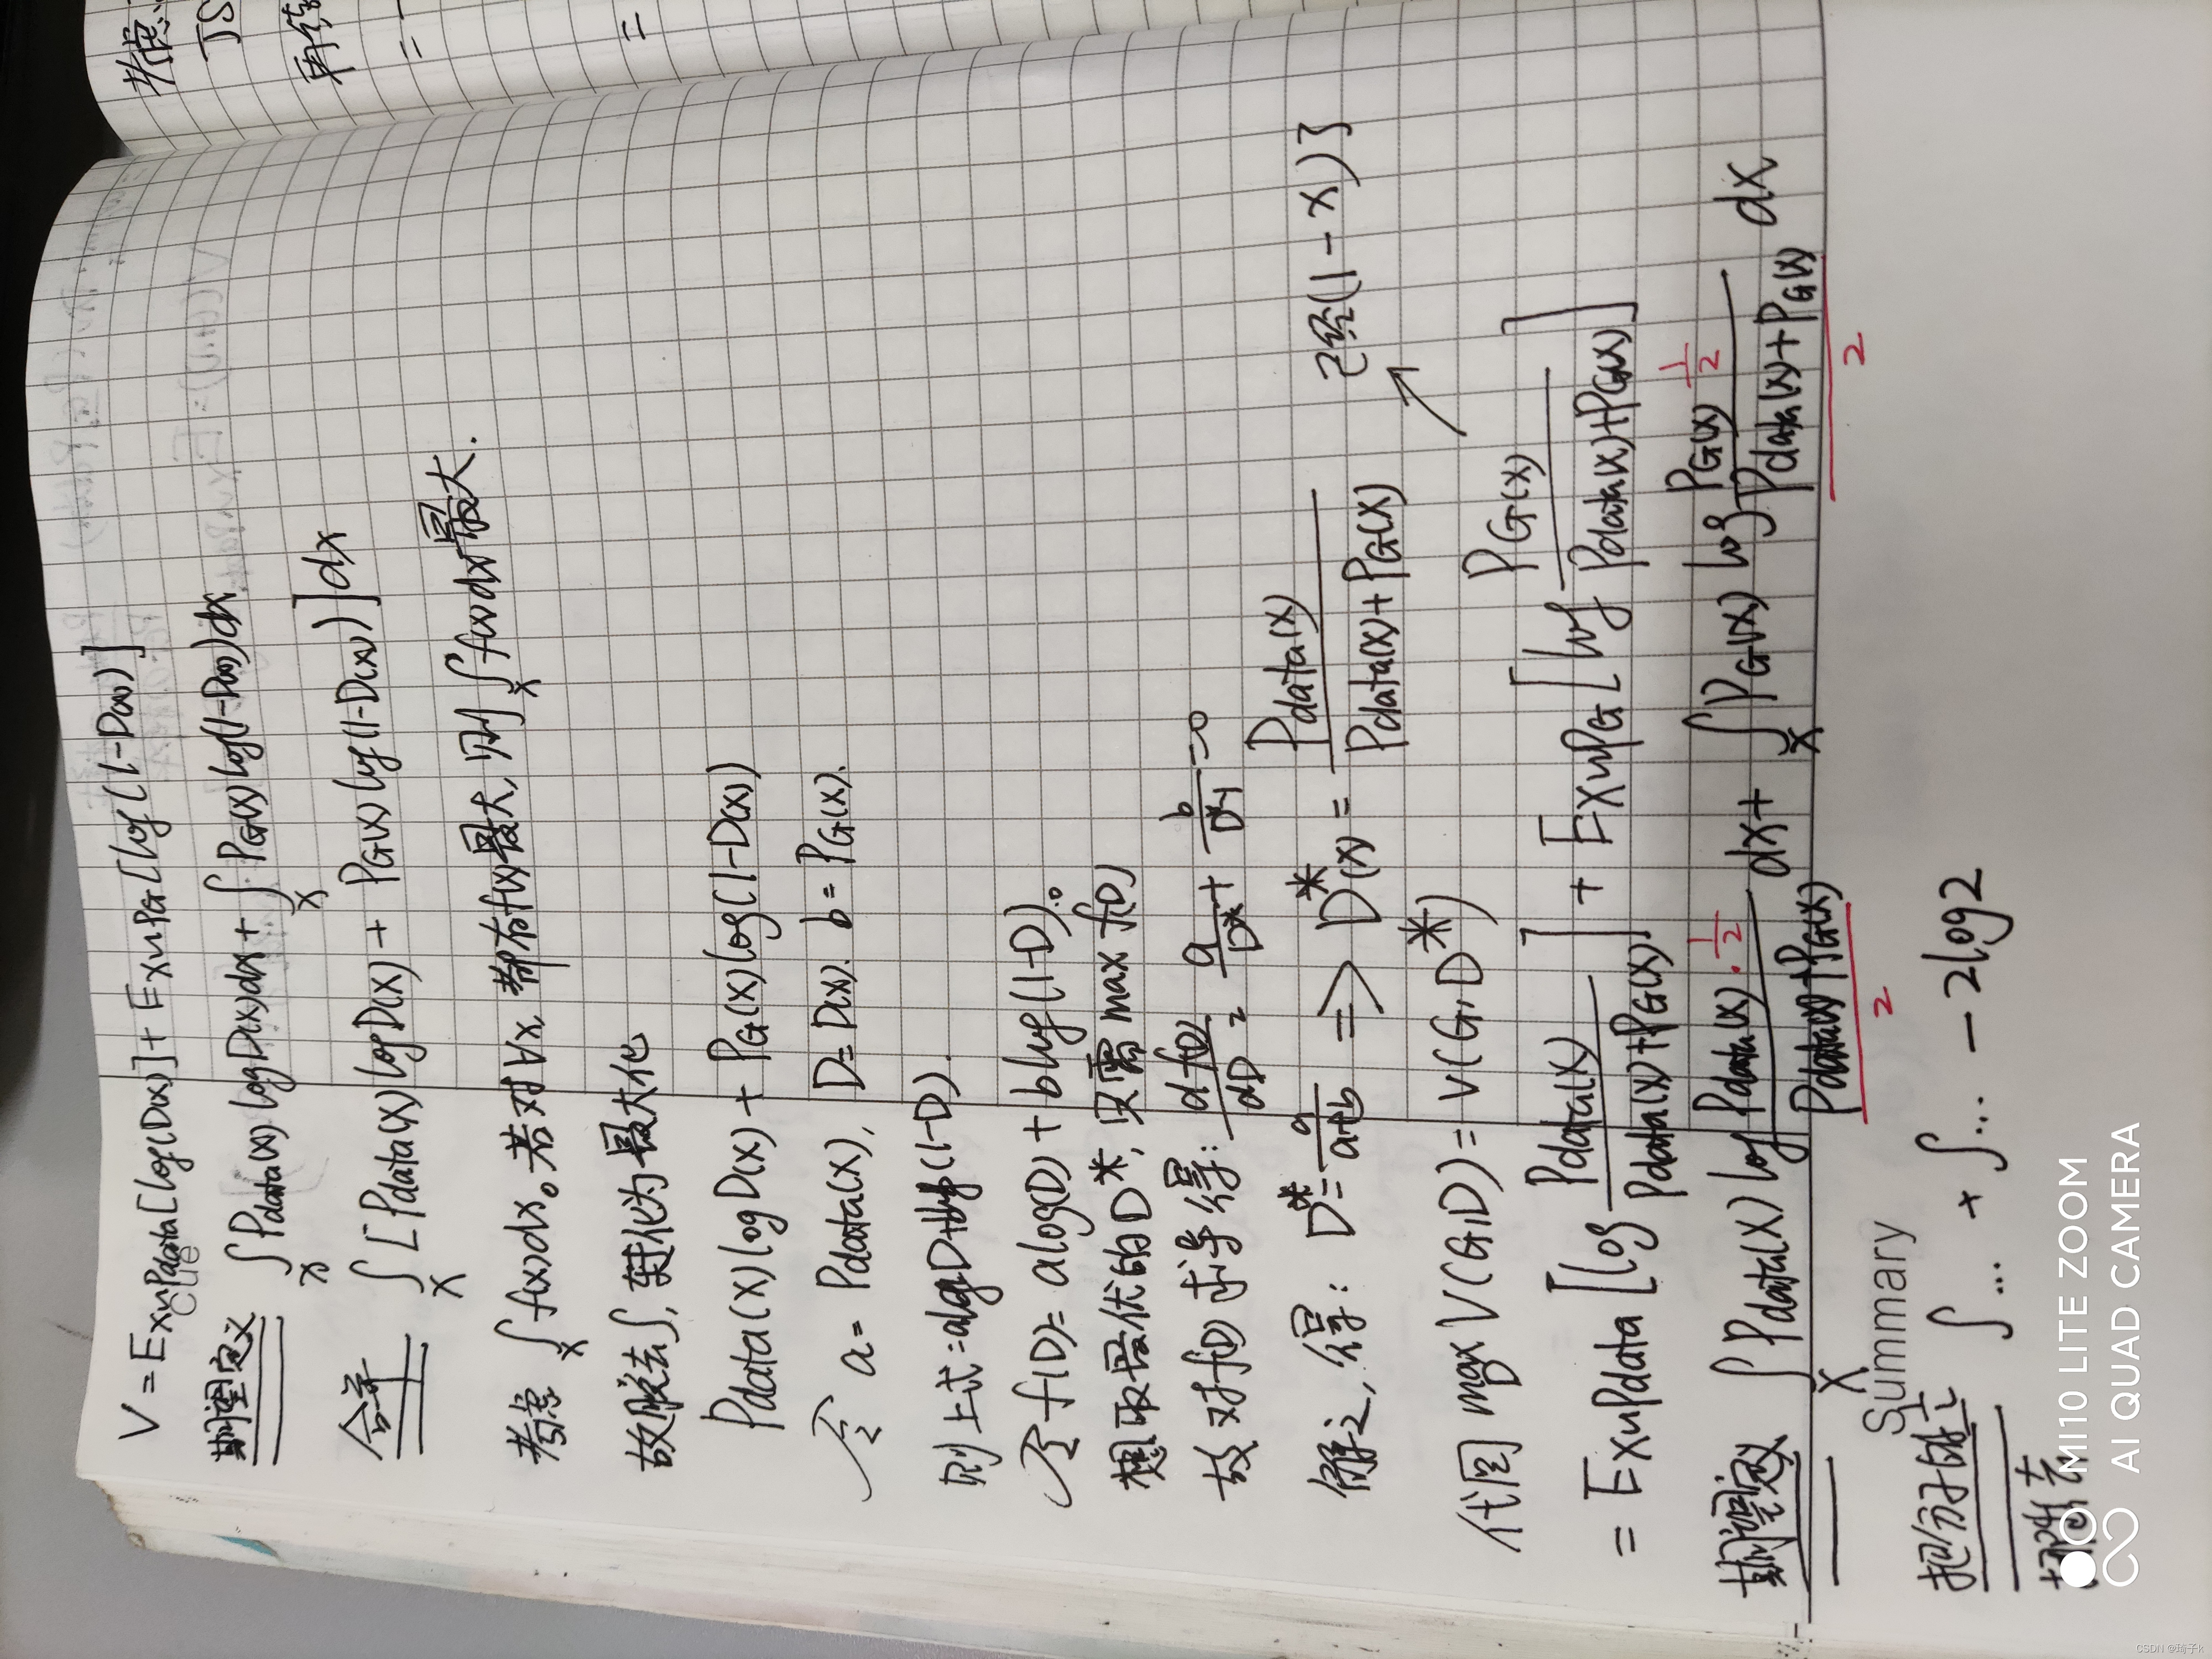 V = Ex~Pdata[log(D(x)] + Ex~PG[log(1-D(x))]
Cue
期望定义 ∫x Pdata(x) log D(x)dx + ∫x PG(x) log(1-D(x))dx
合并 ∫x [Pdata(x) log D(x) + PG(x) log(1-D(x))] dx
考虑 ∫x f(x)dx。若对∀x, 都有f(x)最大, 则∫x f(x)dx最大.
故脱去∫, 转化为最大化
Pdata(x) log D(x) + PG(x) log(1-D(x))
令 a = Pdata(x), D = D(x). b = PG(x).
则上式 = alogD+blog(1-D).
令 f(D) = alog(D) + blog(1-D).
想取最优的D*, 只需 max f(D)
故对f(D)求导得: df(D)/dD = a/D* + b/D*-1 = 0
解之, 得: D* = a/a+b => D*(x) = Pdata(x)/Pdata(x)+PG(x)
已经(1-x)}
代回 max V(G,D) = V(G,D*)
= Ex~Pdata [log Pdata(x)/Pdata(x)+PG(x)] + Ex~PG [log PG(x)/Pdata(x)+PG(x)]
期望定义 ∫x Pdata(x) log Pdata(x)·1/2 / Pdata(x)+PG(x) / 2 dx + ∫x PG(x) log PG(x) 1/2 / Pdata(x)+PG(x) / 2 dx
Summary
把分子的 1/2 ∫... + ∫... - 2log2
考虑
JS
再
=
=
MI10 LITE ZOOM
AI QUAD CAMERA
CSDN @琦子k